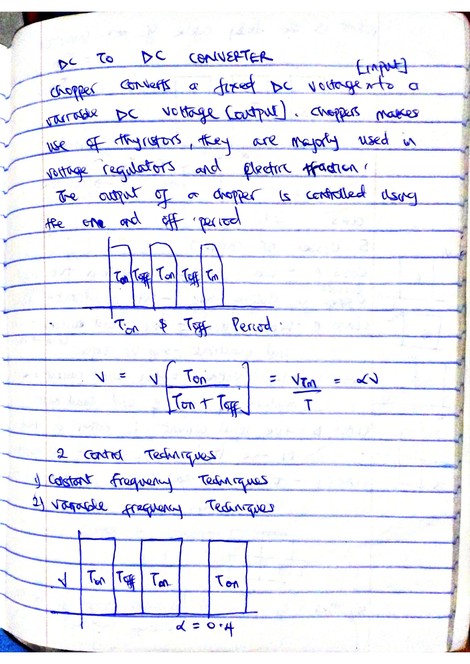 DC TO DC CONVERTER
[input]
chopper converts a fixed DC voltage into a
variable DC voltage [output]. choppers makes
use of thyristors, they are majorly used in
voltage regulators and electric traction.
The output of a chopper is controlled using
the one and off period
Ton Toff Ton Toff Ton
Ton & Toff Period.
V = V [Ton / Ton + Toff] = VTon / T = αV
2 control Techniques
1) Constant frequency Techniques
2) Variable frequency Techniques
V Ton Toff Ton Ton
α = 0.4